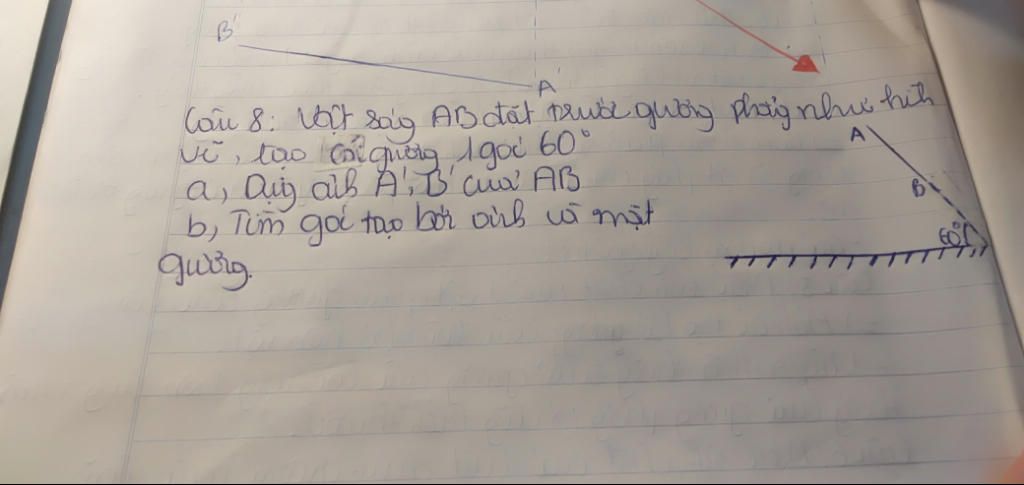 B'
A'
Câu 8: Vật sáng AB đặt trước gương phẳng như hình
vẽ, tạo với gương 1 góc 60°
a, Dựng ảnh A'B' của AB
b, Tìm góc tạo bởi ảnh và mặt
gương.
A
B
60°